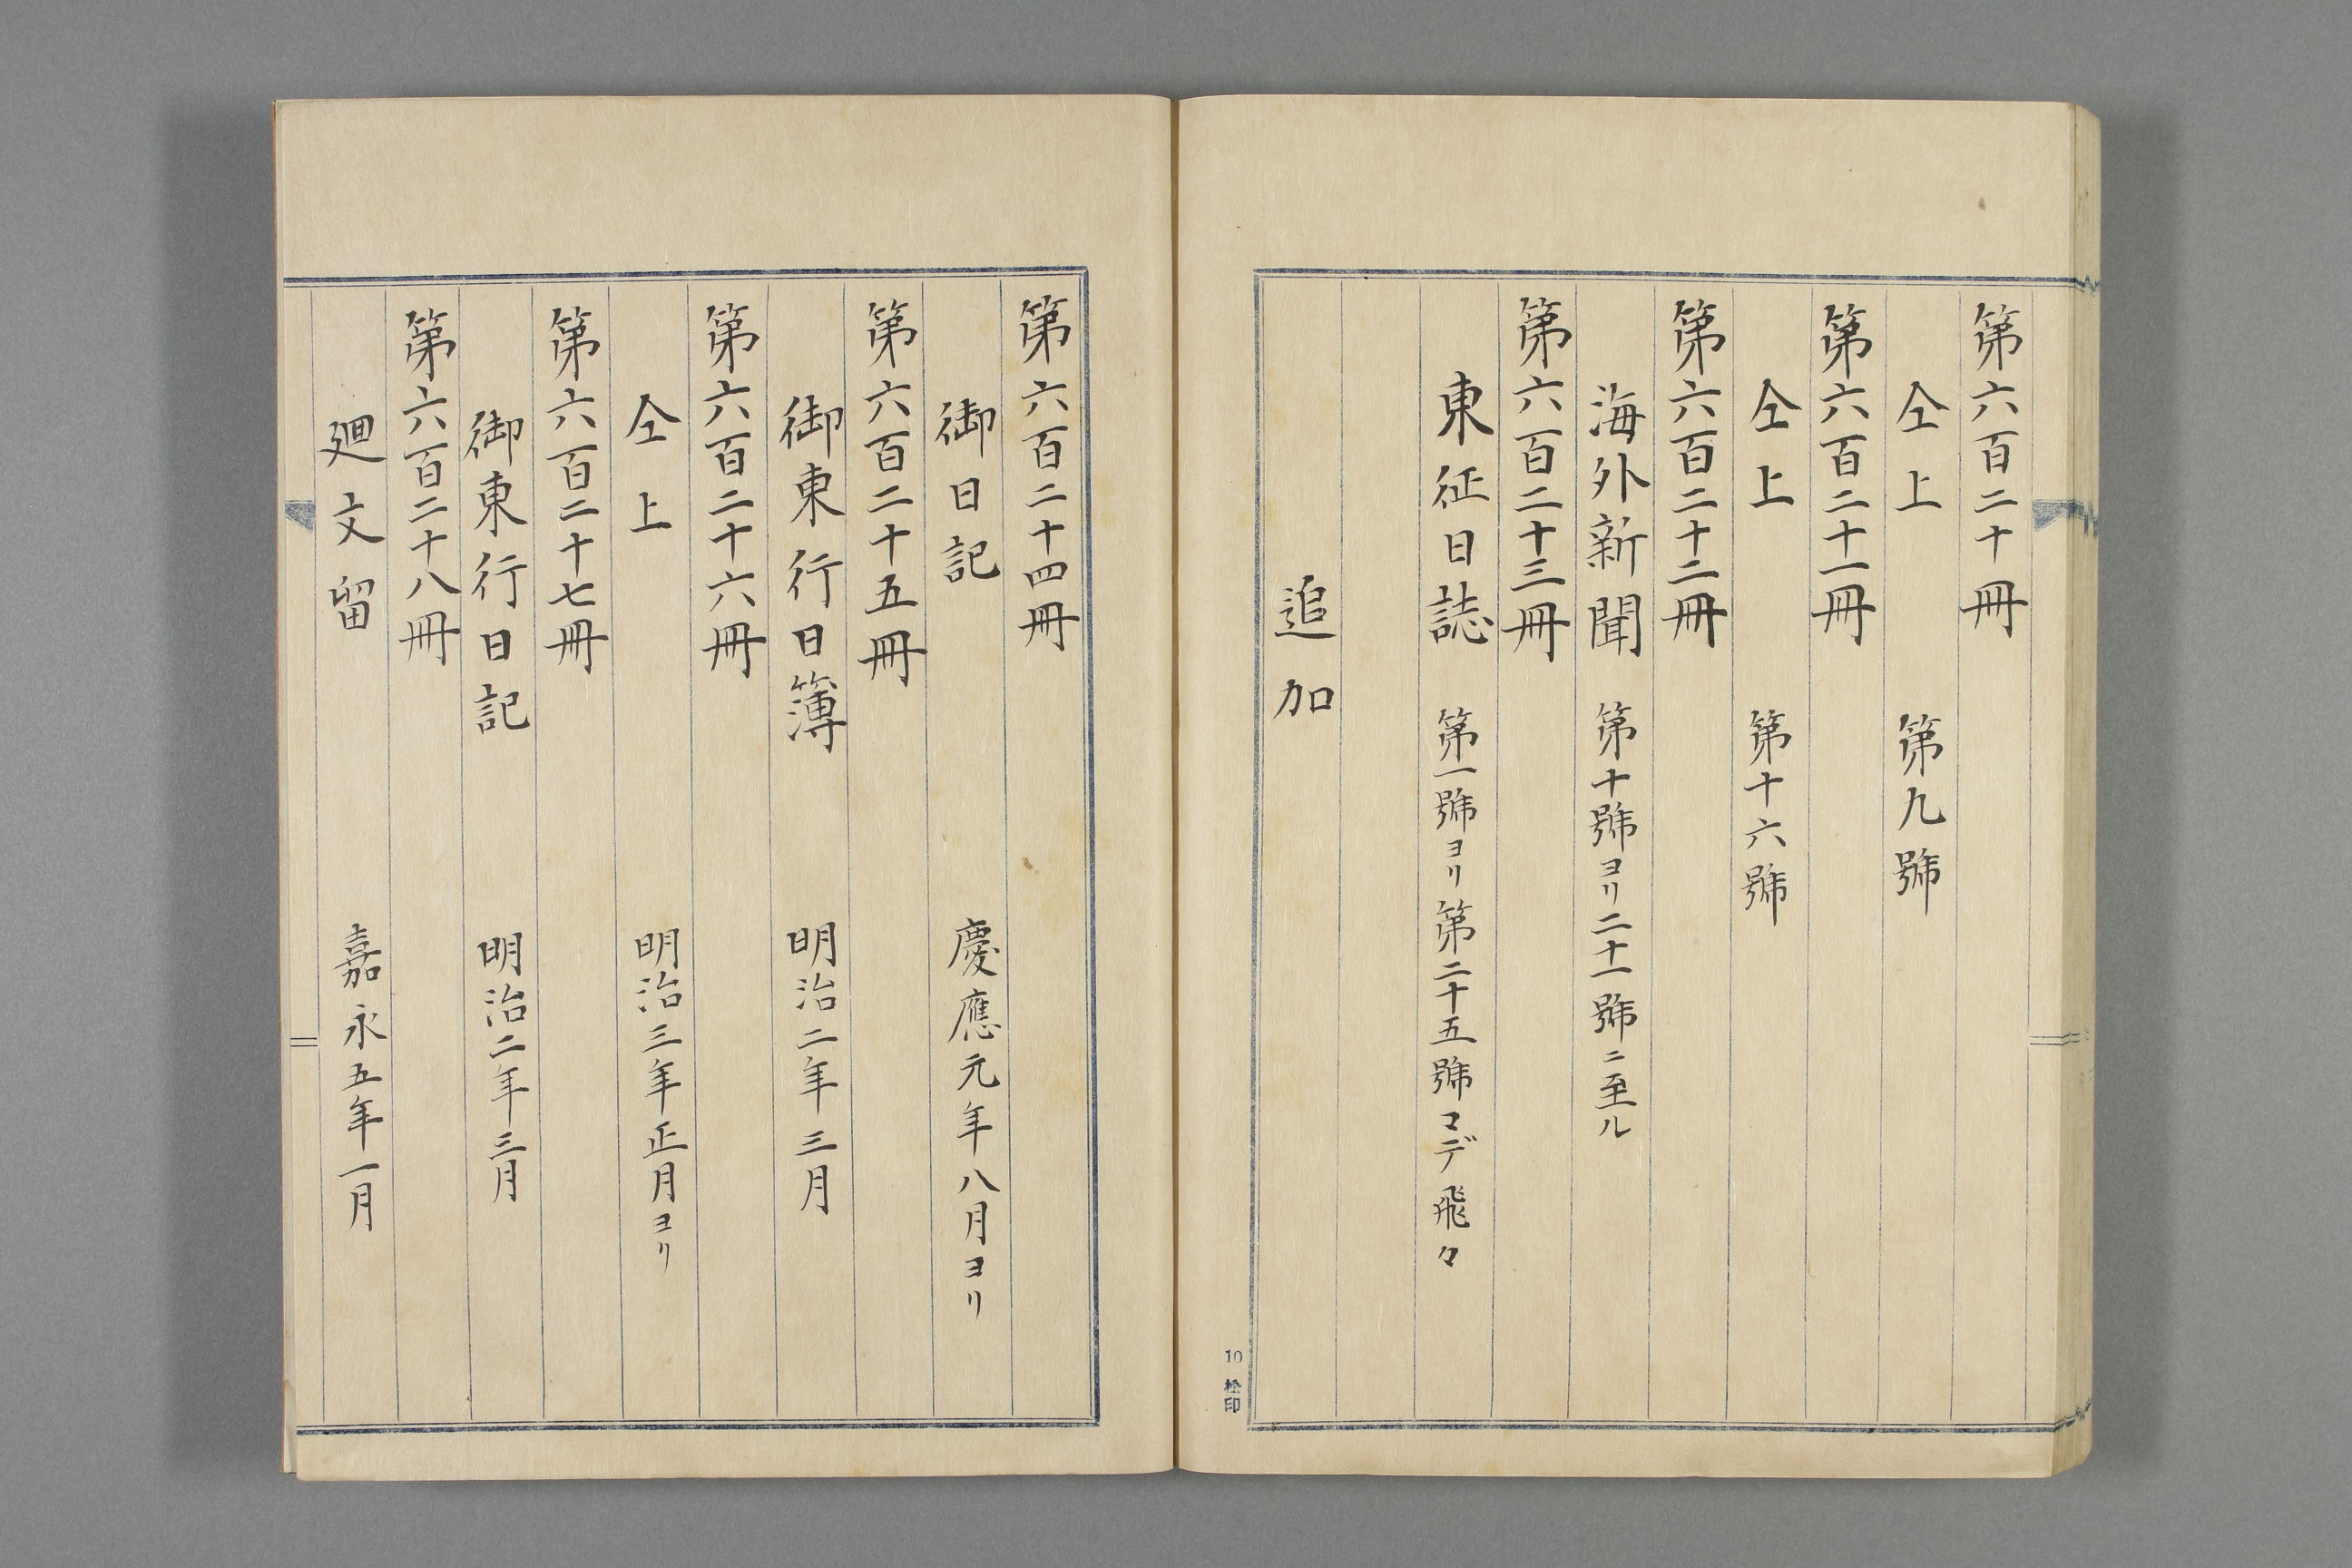 第六百二十冊
仝上 第九號
第六百二十一冊
仝上 第十六號
第六百二十二冊
海外新聞 第十號ヨリ二十一號ニ至ル
第六百二十三冊
東征日誌 第一號ヨリ第二十五號マデ飛々
追加
10 松印
第六百二十四冊
御日記 慶應元年八月ヨリ
第六百二十五冊
御東行日簿 明治二年三月
第六百二十六冊
仝上 明治三年正月ヨリ
第六百二十七冊
御東行日記 明治二年三月
第六百二十八冊
廻文留 嘉永五年一月